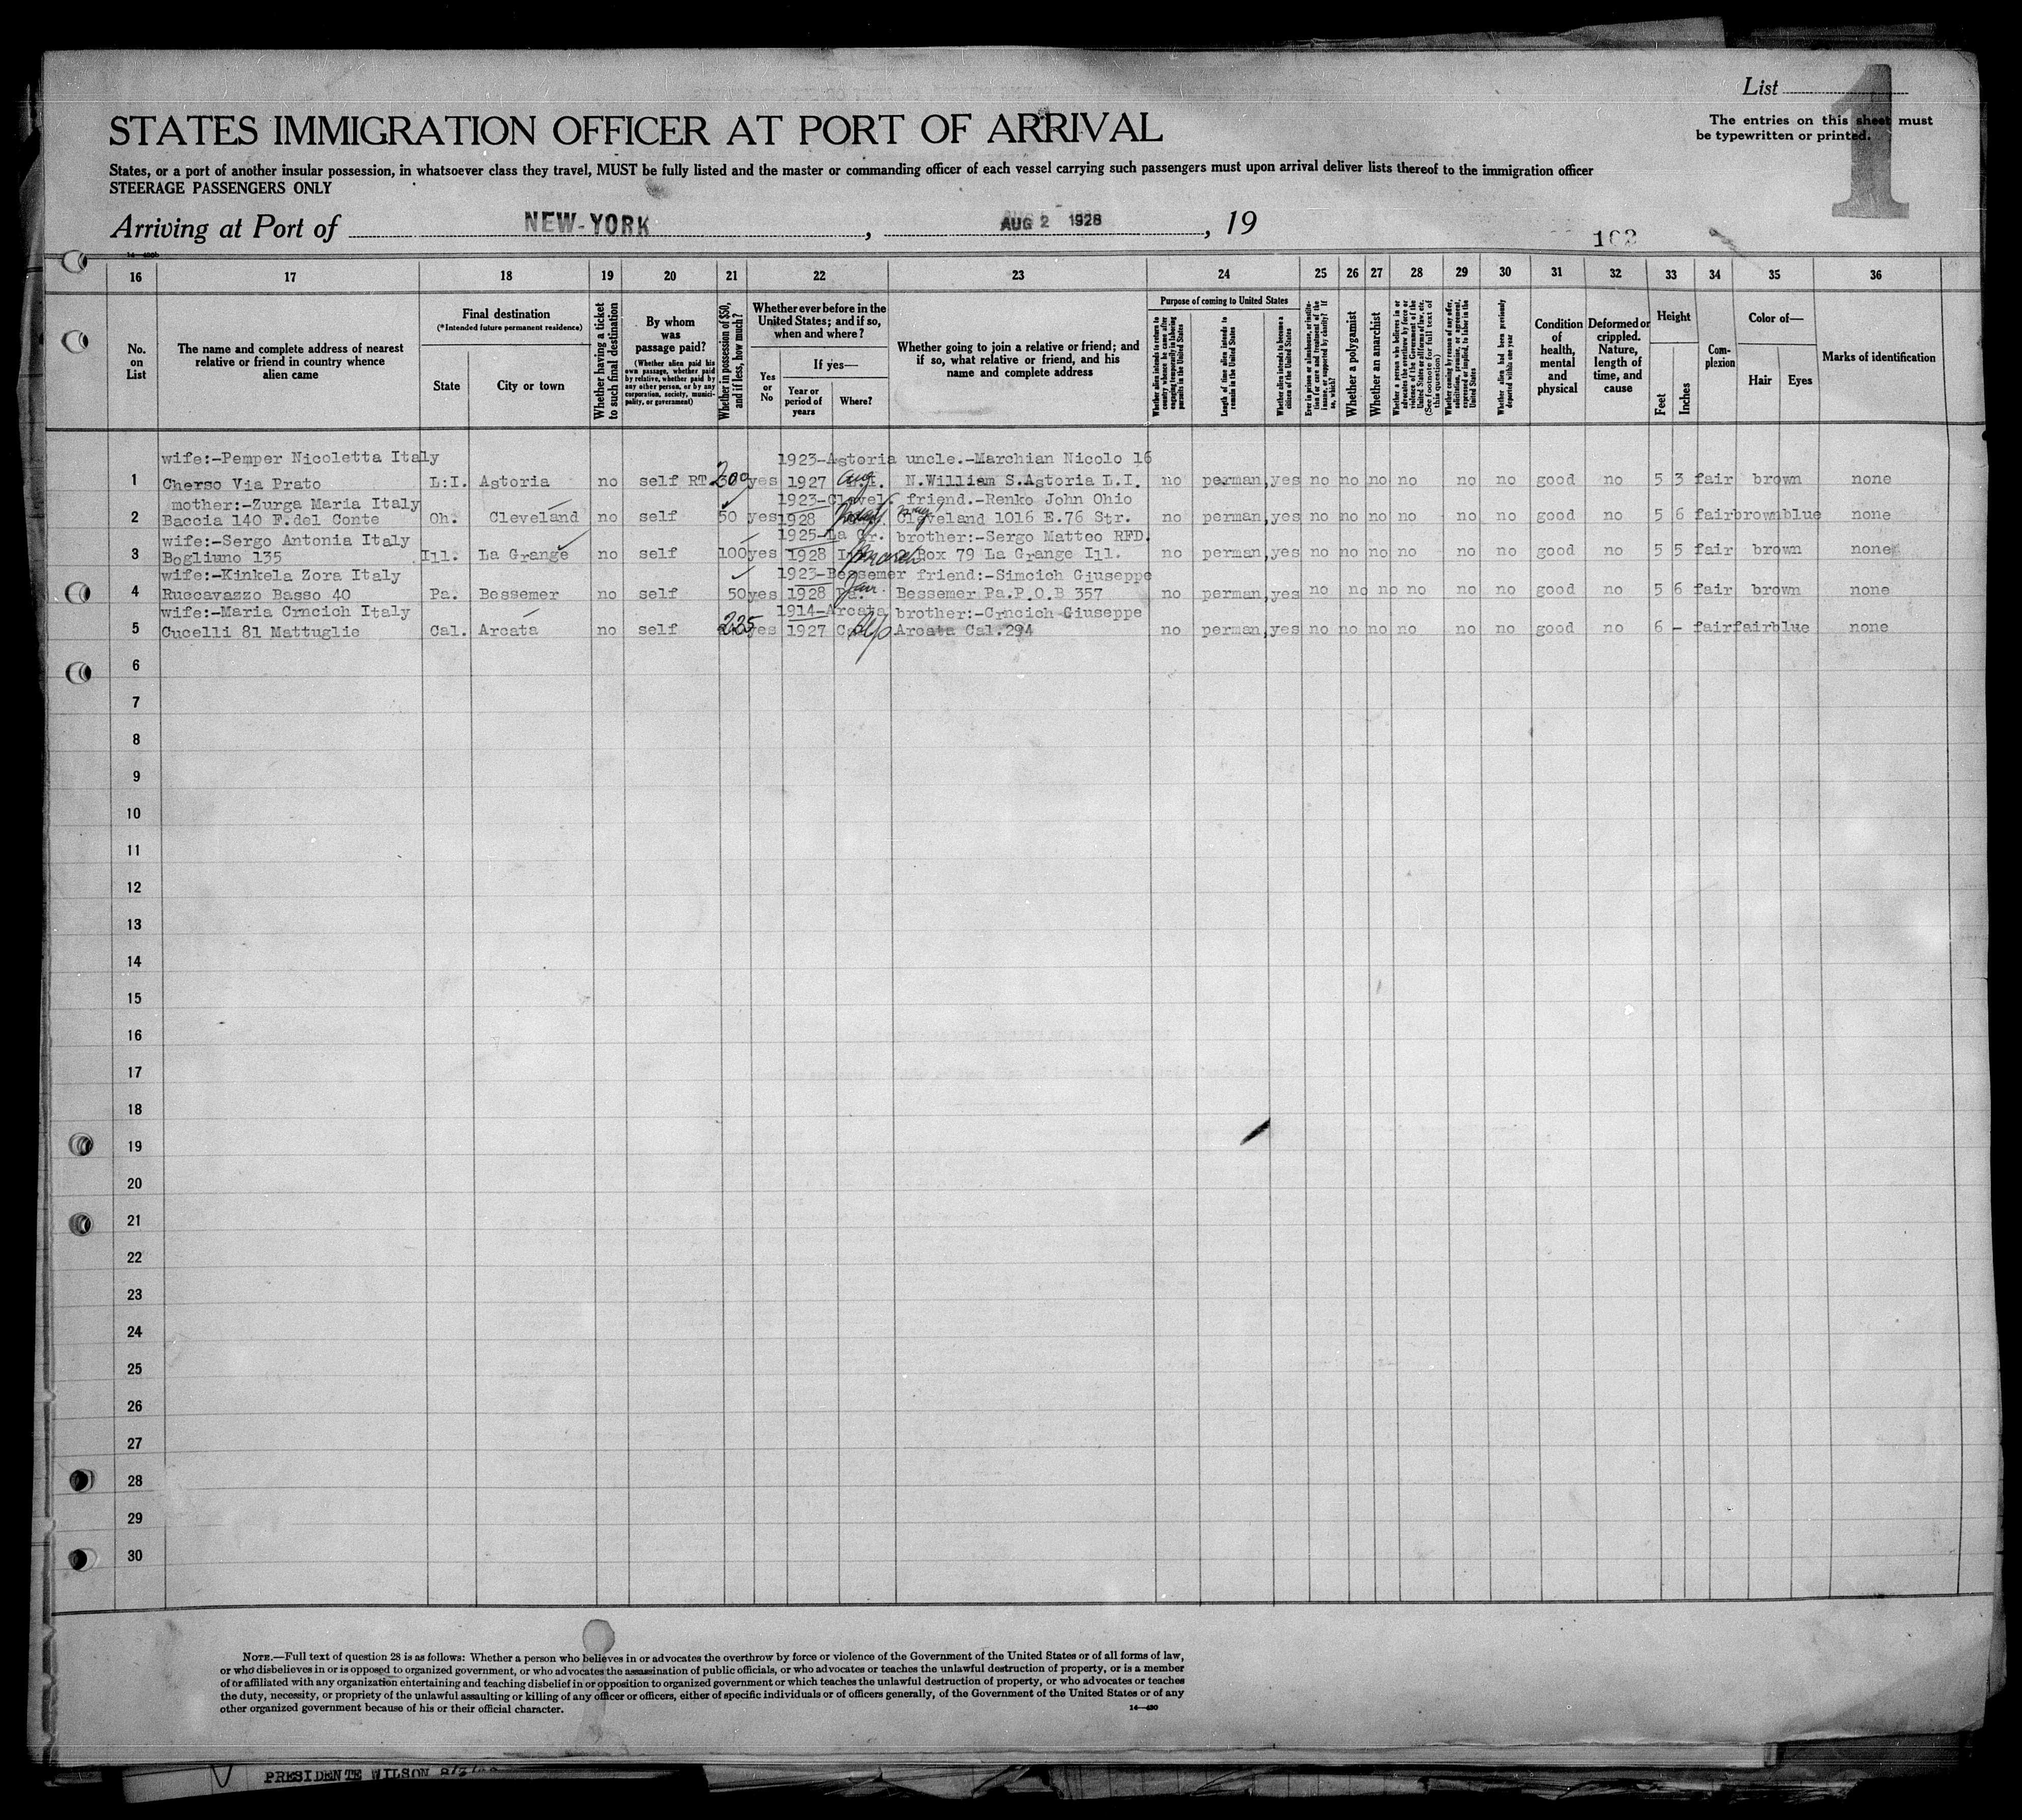 List
1
The entries on this sheet must
be typewritten or printed.
STATES IMMIGRATION OFFICER AT PORT OF ARRIVAL
States, or a port of another insular possession, in whatsoever class they travel, MUST be fully listed and the master or commanding officer of each vessel carrying such passengers must upon arrival deliver lists thereof to the immigration officer
STEERAGE PASSENGERS ONLY
Arriving at Port of NEW-YORK, AUG 2 1928, 19
162
14—430b
16 17 18 19 20 21 22 23 24 25 26 27 28 29 30 31 32 33 34 35 36
No.
on
List
The name and complete address of nearest
relative or friend in country whence
alien came
Final destination
(*Intended future permanent residence)
State
City or town
Whether having a ticket
to such final destination
By whom
was
passage paid?
(Whether alien paid his
own passage, whether paid
by relative, whether paid by
any other person, or by any
corporation, society, munici-
pality, or government)
Whether in possession of $50,
and if less, how much?
Whether ever before in the
United States; and if so,
when and where?
Yes
or
No
If yes—
Year or
period of
years
Where?
Whether going to join a relative or friend; and
if so, what relative or friend, and his
name and complete address
Purpose of coming to United States
Whether alien intends to return to
country whence he came after
engaging temporarily in laboring
pursuits in the United States
Length of time alien intends to
remain in the United States
Whether alien intends to become a
citizen of the United States
Ever in prison or almshouse, or institu-
tion for care and treatment of the
insane, or supported by charity? If
so, which?
Whether a polygamist
Whether an anarchist
Whether a person who believes in or
advocates the overthrow by force or
violence of the Government of the
United States or all forms of law, etc.
(See footnote for full text of
this question)
Whether coming by reason of any offer,
solicitation, promise, or agreement,
expressed or implied, to labor in the
United States
Whether alien had been previously
deported within one year
Condition
of
health,
mental
and
physical
Deformed or
crippled.
Nature,
length of
time, and
cause
Height
Feet
Inches
Com-
plexion
Color of—
Hair
Eyes
Marks of identification
wife:-Pemper Nicoletta Italy 1923-Astoria uncle.-Marchian Nicolo 16
1 Cherso Via Prato L:I. Astoria no self RT 200 yes 1927 Aug. N.William S.Astoria L.I. no perman, yes no no no no no no good no 5 3 fair brown none
mother:-Zurga Maria Italy 1923-Clevel. friend.-Renko John Ohio
2 Baccia 140 F.del Conte Oh. Cleveland no self 50 yes 1928 May Cleveland 1016 E.76 Str. no perman, yes no no no no no no good no 5 6 fair brown blue none
wife:-Sergo Antonia Italy 1925-La Gr. brother:-Sergo Matteo RFD.
3 Bogliuno 135 Ill. La Grange no self 100 yes 1928 Box 79 La Grange Ill. no perman, yes no no no no no no good no 5 5 fair brown none
wife:-Kinkela Zora Italy 1923-Bessemer friend:-Simcich Giuseppe
4 Ruccavazzo Basso 40 Pa. Bessemer no self 50 yes 1928 Pa. Jan. Bessemer Pa.P.O.B 357 no perman, yes no no no no no no good no 5 6 fair brown none
wife:-Maria Crncich Italy 1914-Arcata brother:-Crncich Giuseppe
5 Cucelli 81 Mattuglie Cal. Arcata no self 225 yes 1927 Arcata Cal.294 no perman, yes no no no no no no good no 6 - fair fair blue none
6
7
8
9
10
11
12
13
14
15
16
17
18
19
20
21
22
23
24
25
26
27
28
29
30
NOTE.—Full text of question 28 is as follows: Whether a person who believes in or advocates the overthrow by force or violence of the Government of the United States or of all forms of law,
or who disbelieves in or is opposed to organized government, or who advocates the assassination of public officials, or who advocates or teaches the unlawful destruction of property, or is a member
of or affiliated with any organization entertaining and teaching disbelief in or opposition to organized government or which teaches the unlawful destruction of property, or who advocates or teaches
the duty, necessity, or propriety of the unlawful assaulting or killing of any officer or officers, either of specific individuals or of officers generally, of the Government of the United States or of any
other organized government because of his or their official character.
14—430
PRESIDENTE WILSON